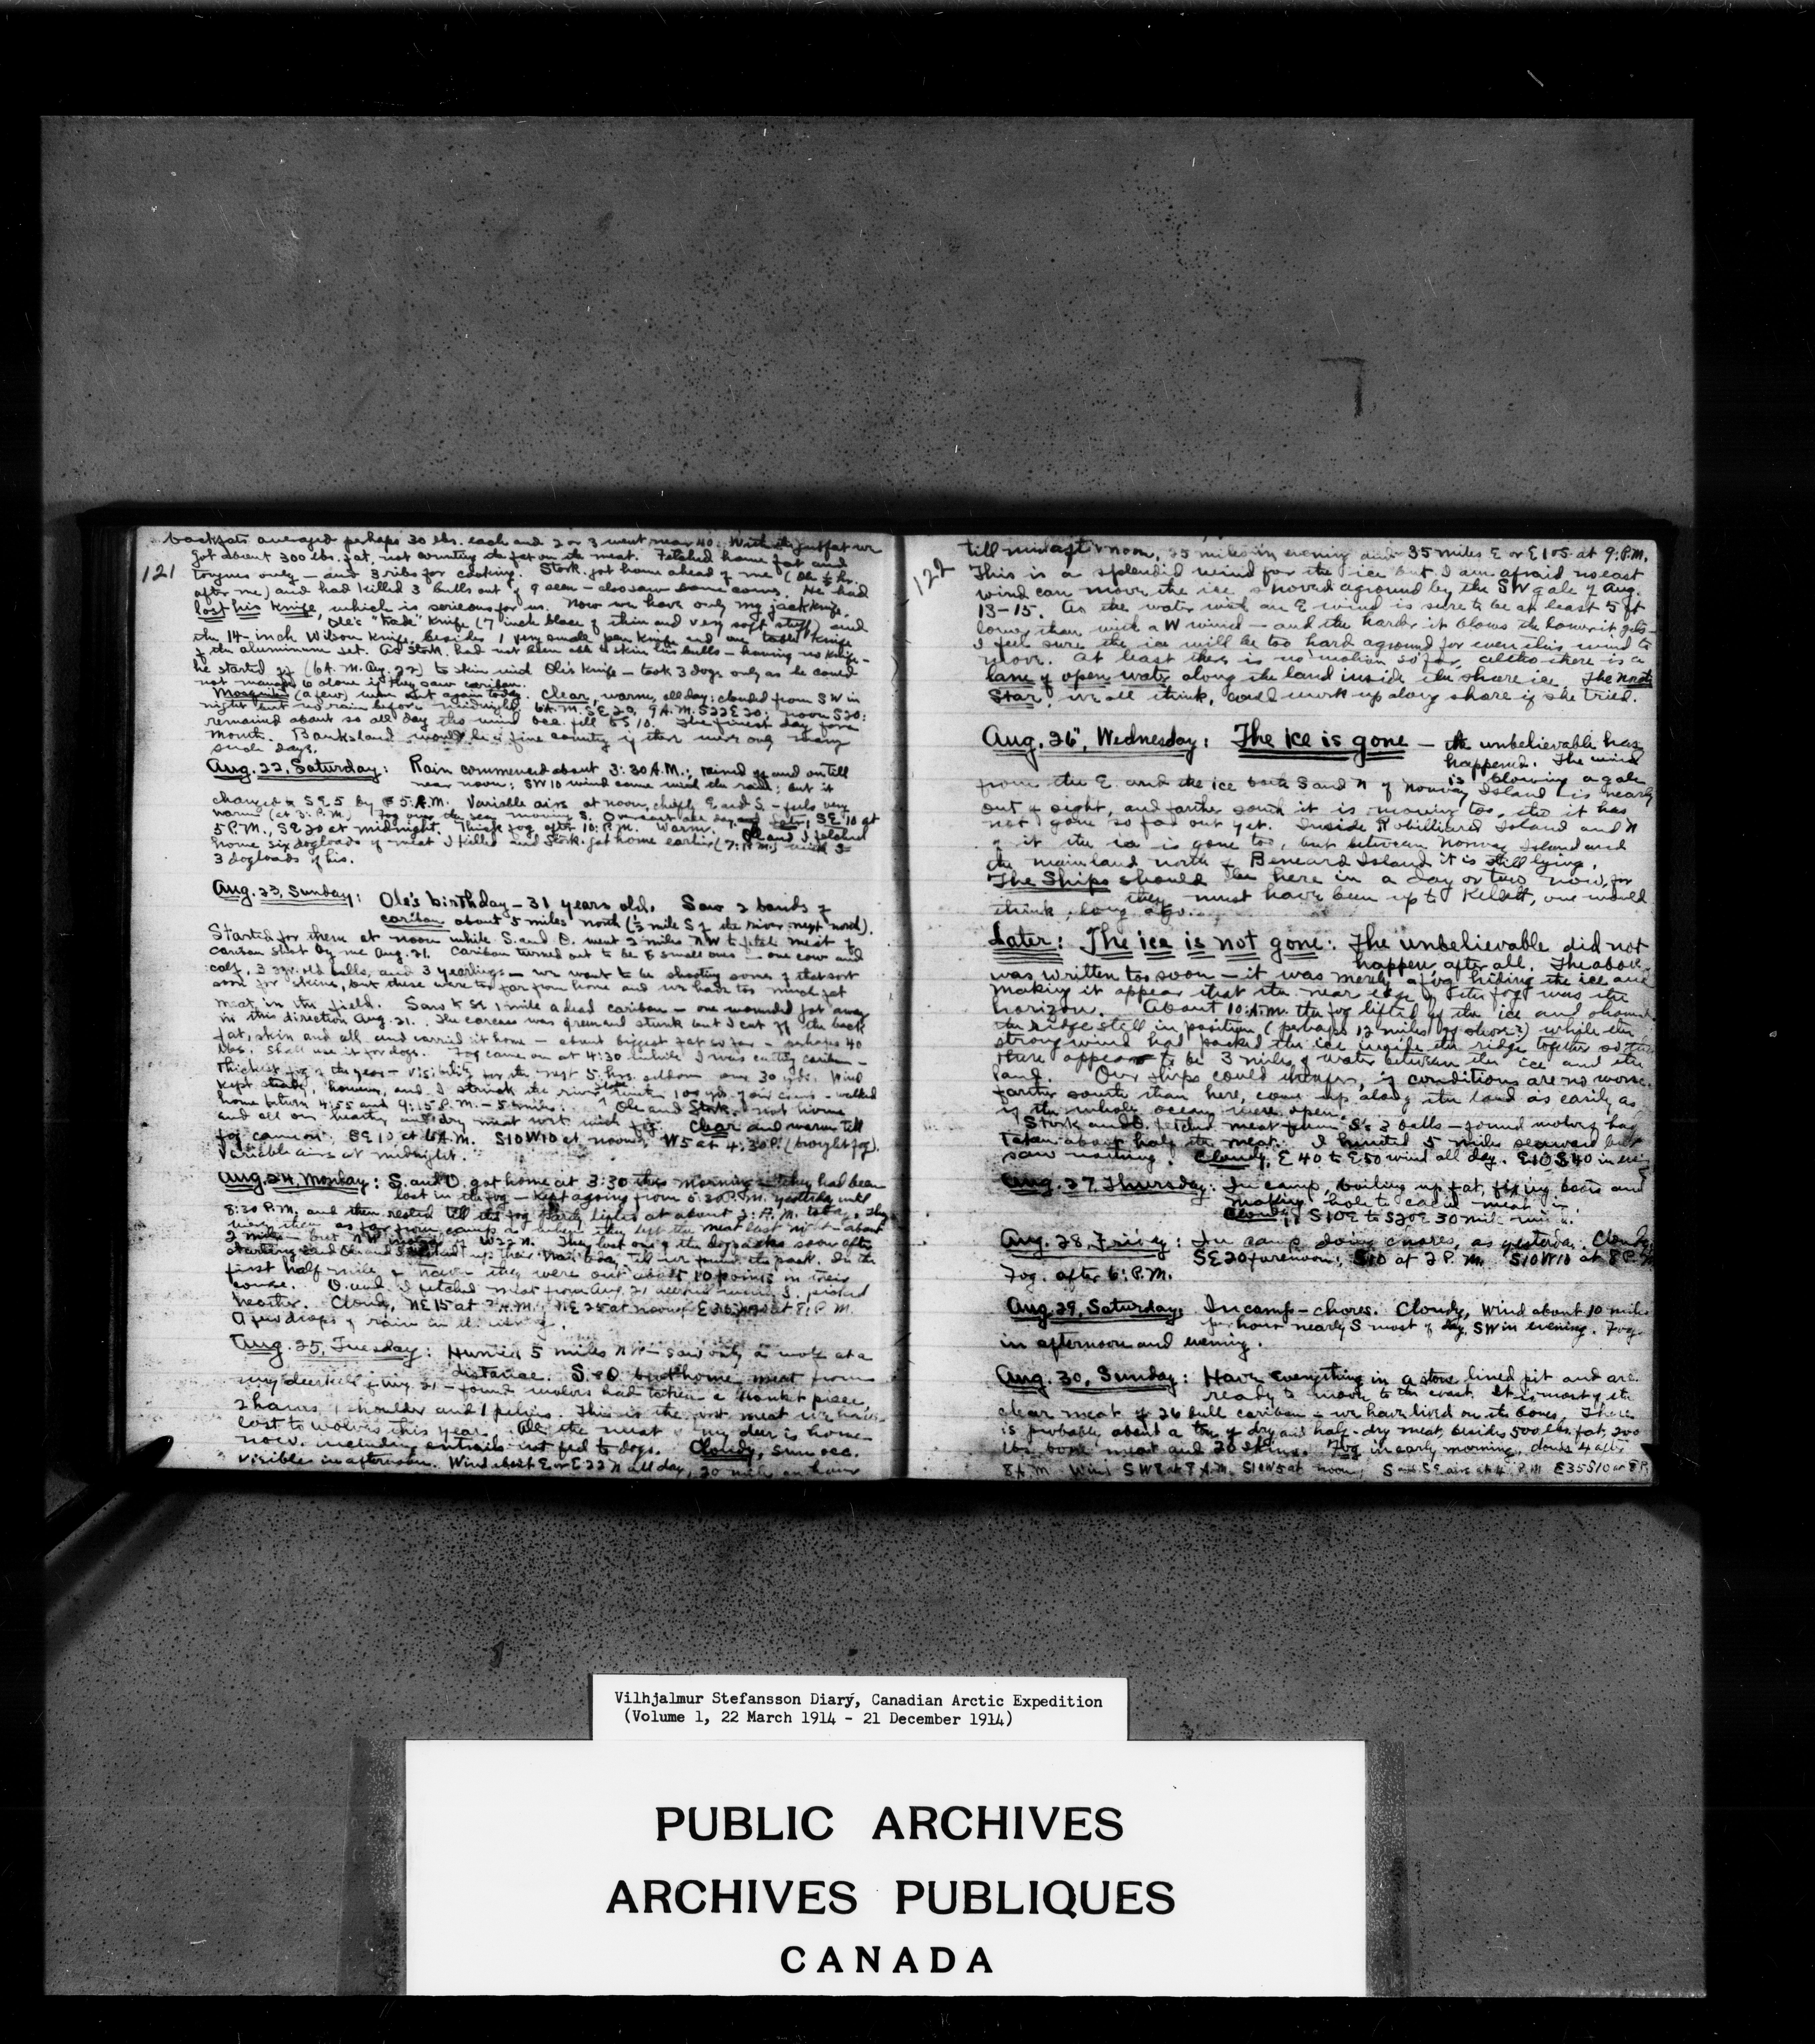 backfats averaged perhaps 30 lbs. each and 2 or 3 went near 40. With the gutfat we
got about 300 lbs. fat, not counting the fat on the meat. Fetched home fat and
121
tongues only – and 3 ribs for cooking. Stork. got home ahead of me (Ole ½ hr.
after me) and had killed 3 bulls out of 9 seen – also saw some cows. He had
lost his knife, which is serious for us. Now we have only my jackknife,
Ole's "trade" knife (7 inch blade of thin and very soft stuff) and
the 14-inch Wilson knife, besides 1 very small pen knife and one table knife
of the aluminum set. As Stork. had not been able to skin his bulls – having no knife –
he started off (6 A.M. Aug. 22) to skin with Ole's knife – took 3 dogs only as he could
not manage 6 alone if they saw caribou.
Mosquitos (a few) were out again today. Clear, warm, all day; clouded from SW in
night but no rain before midnight. 6 A.M. SE 20, 9 A.M. S22E20; noon S20;
remained about so all day tho wind occ. fell to S10. The finest day for a
month. Banksland would be a fine country if there were only many
such days.
Aug. 22, Saturday: Rain commenced about 3:30 A.M.; rained off and on till
near noon; SW10 wind came with the rain; but it
changed to SE5 by 5 A.M. Variable airs at noon, chiefly E and S – feels very
warm (at 3 P.M.) Fog over the sea moving S. Overcast all day, SE 10 at
5 P.M., SE 20 at midnight. Thick fog after 10 P.M. Warm. Ole and I fetched
home six dogloads of meat I killed and Stork. got home earlier (7: P.M.) with
3 dogloads of his.
Aug. 23, Sunday: Ole's birthday – 31 years old. Saw 2 bands of
caribou about 5 miles north (½ mile S of the river next north).
Started for them at noon while S. and O. went 2 miles NW to fetch meat of
caribou shot by me Aug. 21. Caribou turned out to be 8 small ones – one cow and
calf, 3 2yr. old bulls, and 3 yearlings – we want to be shooting some of that sort
soon for skins, but these were too far from home and we have too much fat
meat in the field. Saw 1 mile a dead caribou – one wounded got away
in this direction Aug. 21. The carcass was green and stunk but I cut off the back
fat, skin and all and carried it home – about biggest fat so far – perhaps 40
lbs. Shall use it for dogs. Fog came on at 4:30 while I was cutting caribou –
thickest fog of the year – visibility for the next 5 hrs. seldom over 30 yds. Wind
kept steady, however, and I struck the river slope within 100 yds. of our camp – walked
home between 4:55 and 9:15 P.M. – 5 miles. Ole and Stork. not home
and all our nearly dry meat wet with fog. Clear and warm till
fog came on; SE 10 at 6 A.M. S10W10 at noon; W5 at 4:30 P. (brought fog).
Variable airs at midnight.
Aug. 24, Monday: S. and O. got home at 3:30 this morning – they had been
lost in the fog – kept agoing from 5:30 P.M. yesterday until
8:30 P.M. and then rested till the fog lights at about 2: A.M. today. They
were then as far from camp as when they left the meat last night – about
2 miles – but NW instead of W22N. They lost one of the dogpacks soon after
starting and Ole and I backed up their trail today till we found the pack. In the
first half mile of travel they were out about 10 points in their
course. O. and I fetched meat from Aug. 21 while S. picked
heather. Cloudy, NE 15 at 7 A.M.; NE 25 at noon; at 8: P.M.
A few drops of rain in the evening.
Aug. 25, Tuesday: Hunted 5 miles NW – saw only a wolf at a
distance. S. & O. brot home meat from
my deerkill of Aug. 21 – found wolves had taken a brisket piece,
2 hams, 1 shoulder and 1 pelvis. This is the first meat we have
lost to wolves this year. All the meat of my deer is home
now, including entrails not fed to dogs. Cloudy, sun occ.
visible in afternoon. Wind about E or E22N all day, 20 miles an hour
122
till midafternoon, 25 miles in evening and 35 miles E or E10S at 9: P.M.
This is a splendid wind for the ice but I am afraid no east
wind can move the ice shoved aground by the SW gale of Aug.
13-15. As the water with an E wind is sure to be at least 5 ft
lower than with a W wind – and the harder it blows the lower it gets –
I feel sure the ice will be too hard aground for even this wind to
move. At least there is no motion so far, altho there is a
lane of open water along the land inside the shore ice. The North
Star, we all think, could work up along shore if she tried.
Aug. 26, Wednesday: The ice is gone – the unbelievable has
happened. The wind
is blowing a gale
from the E. and the ice both S and N of Norway Island is nearly
out of sight, and farther south it is moving too, tho it has
not gone so far out yet. Inside Robilliard Island and N
of it the ice is gone too, but between Norway Island and
the mainland north of Bernard Island it is still lying.
The Ships should be here in a day or two now, for
they must have been up to Kellett, one would
think, long ago.
Later: The ice is not gone: The unbelievable did not
happen, after all. The above
was written too soon – it was merely a fog hiding the ice and
making it appear that the near edge of the fog was the
horizon. About 10: A.M. the fog lifted off the ice and showed
the ridge still in position (perhaps 12 miles off shore?) while the
strong wind had packed the ice inside the ridge together so that
there appears to be 3 miles of water between the ice and the
land. Our ships could therefore, if conditions are no worse
farther south than here, come up along the land as easily as
if the whole ocean were open.
Stork and O. fetched meat from S's 3 bulls – found wolves had
taken about half the meat. I hunted 5 miles seaward but
saw nothing. Cloudy, E 40 to E 50 wind all day. E10S40 in
Aug. 27, Thursday: In camp, boiling up fat, fixing boots and
making hole to cache meat in.
Cloudy, S10E to S20E 30 mile wind.
Aug. 28, Friday: In camp doing chores, as yesterday. Cloudy,
SE 20 forenoon; S10 at 2 P.M. S10W10 at 8 P.M.
Fog. after 6: P.M.
Aug. 29, Saturday: In camp – chores. Cloudy, wind about 10 miles
per hour nearly S most of day, SW in evening. Fog
in afternoon and evening.
Aug. 30, Sunday: Have everything in a stone lined pit and are
ready to move to the coast. It is mostly the
clear meat of 26 bull caribou – we have lived on the bones. There
is probably about a ton of dry and half-dry meat, besides 500 lbs. fat, 200
lbs. bone meat and 20 skins. Fog in early morning, clouds after
8 A.M. Wind SW8 at 8 A.M. S10W5 at noon, S and SE airs at 4 P.M. E35S10 at 8 P.
Vilhjalmur Stefansson Diary, Canadian Arctic Expedition
(Volume 1, 22 March 1914 - 21 December 1914)
PUBLIC ARCHIVES
ARCHIVES PUBLIQUES
CANADA